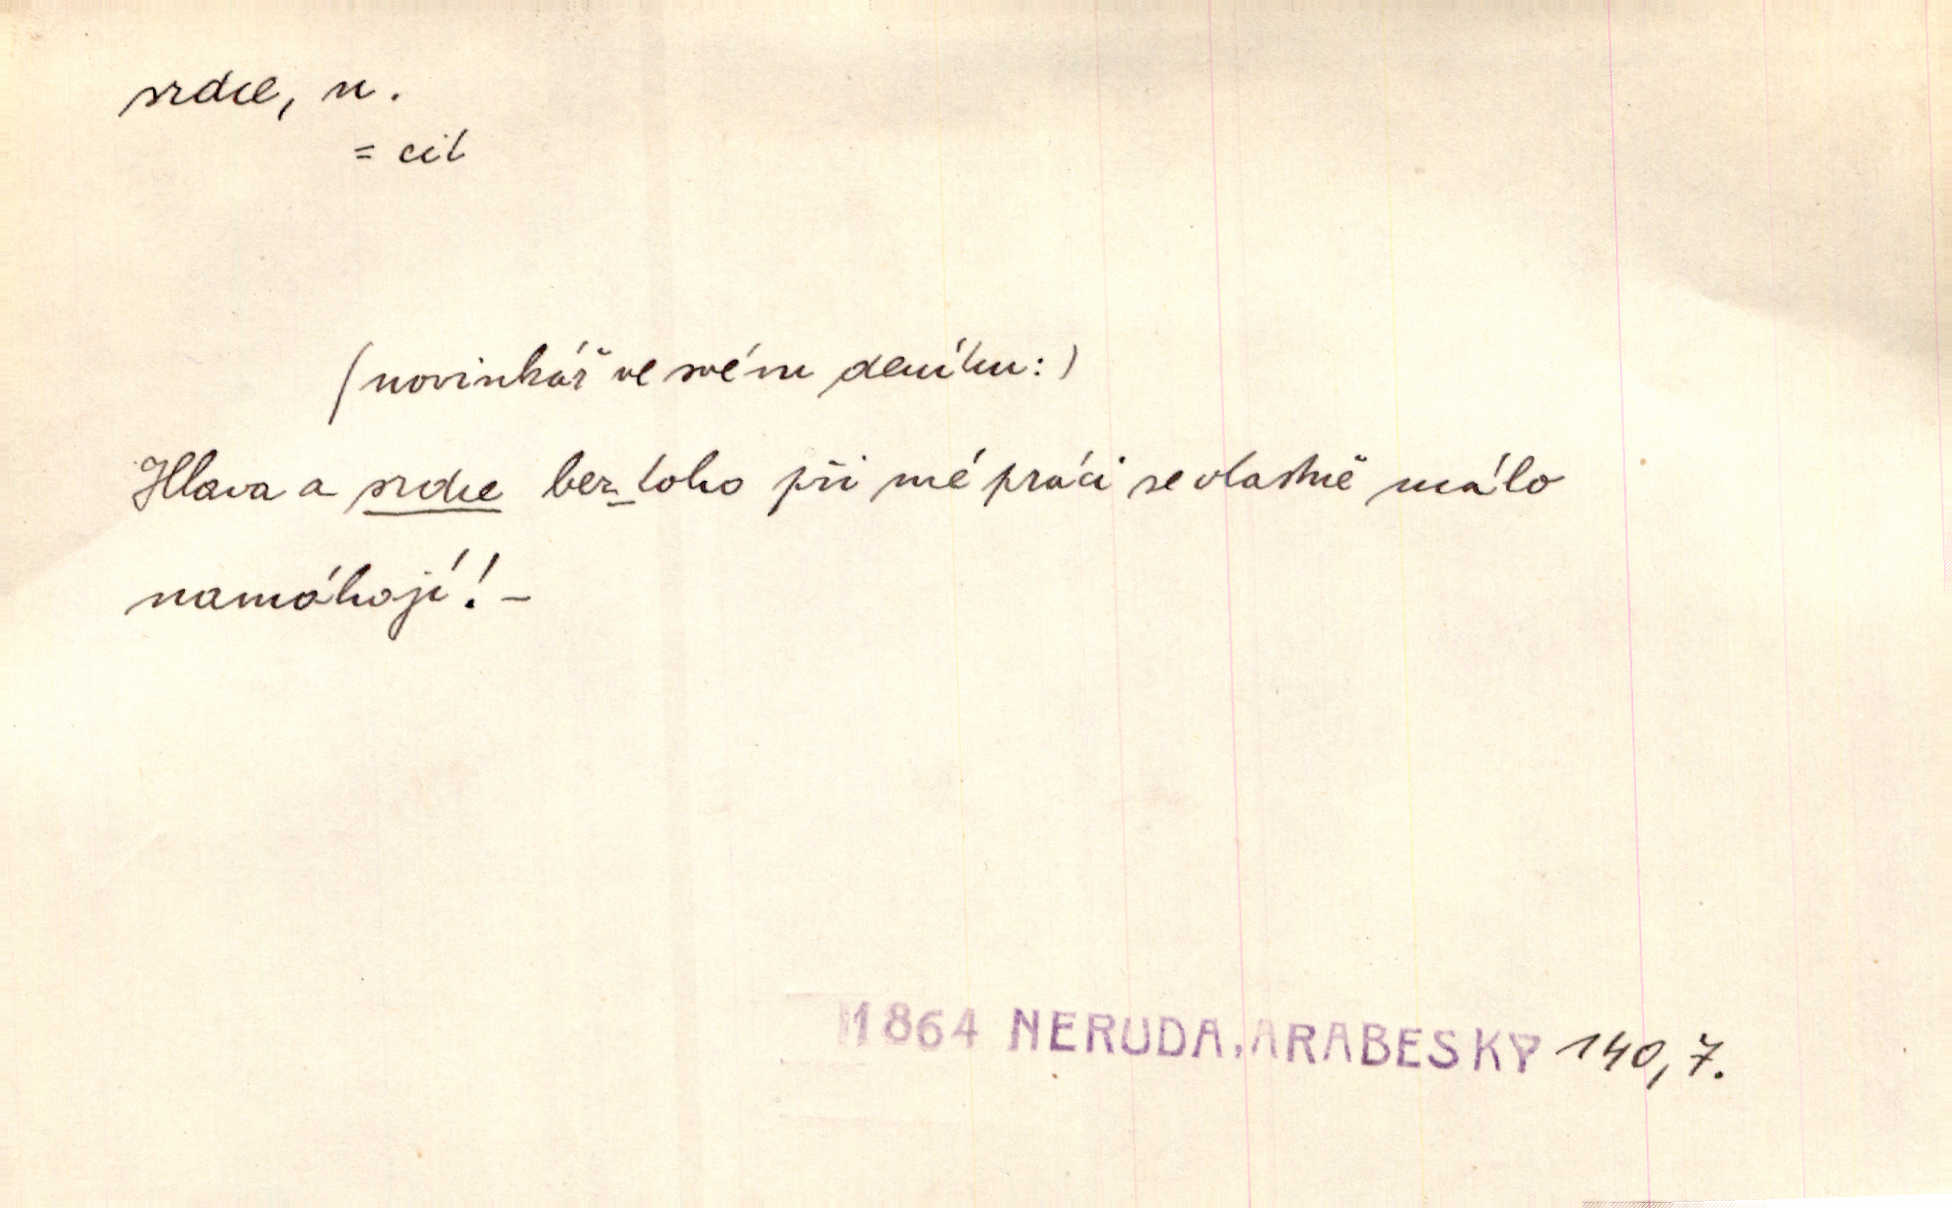 srdce, n.
= cit
(novinkář ve svém deníku:)
Hlava a srdce bez toho při mé práci se vlastně málo
namáhají! –
1864 NERUDA, ARABESKY 140,7.